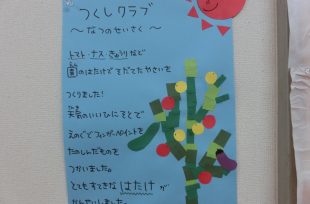 つくしクラブ
～なつのせいさく～
トマト・ナス・きゅうりなど
園のはたけで そだてたやさいを
つくりました!
天気のいいひに そとで
えのぐとフィンガーペイントを
たのしんだものを
つかいました。
とてもすてきな はたけ が
かんせいしました